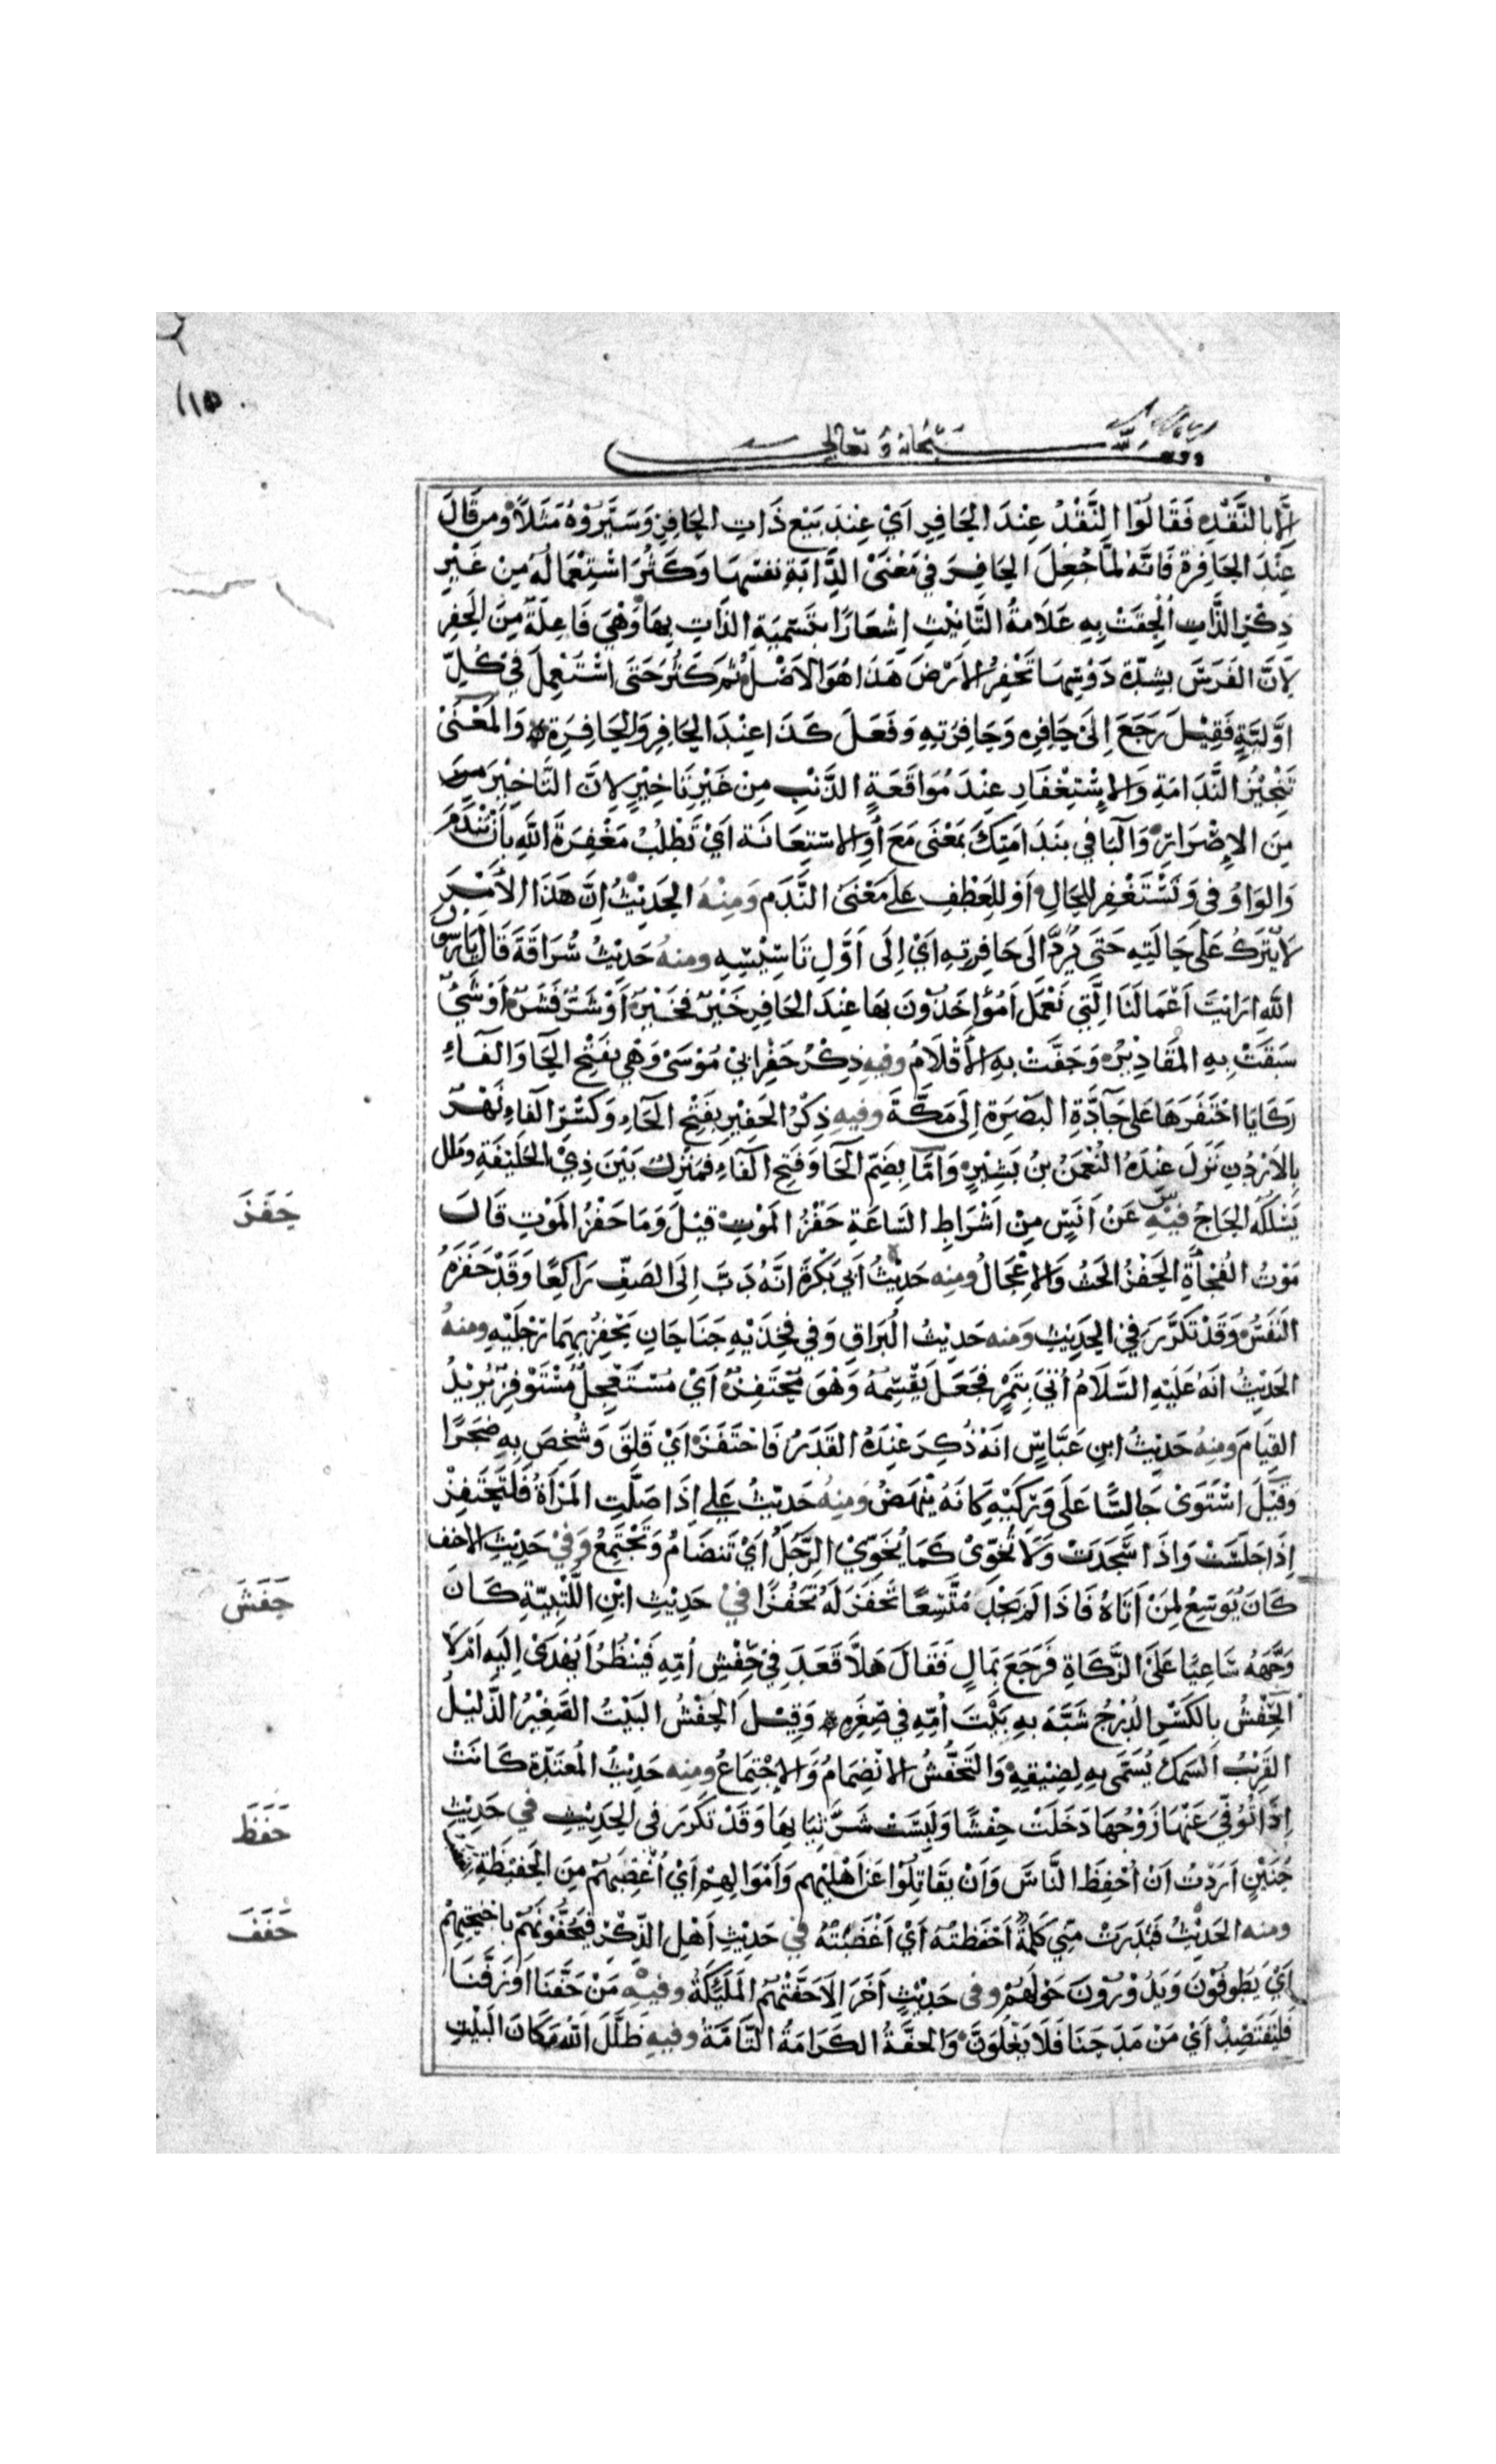 وقف لله سبحانه وتعالى
إِلَّا بِالنَّقْدِ فَقَالُوا النَّقْدُ عِنْدَ الحَافِرِ اَيْ عِنْدَ بَيْعِ ذَاتِ الحَافِرِ وَسَيَّرُوْهُ مَثَلًا وَمن قَالَ
عِنْدَ الحَافِرَةِ فَاَنَّهُ لَمَّا جُعِلَ الحَافِرَ فِي مَعْنَى الدَّابَّةِ نفسِهَا وَكَثُرَ اسْتِعْمَالُهُ مِنْ غَيْرِ
ذِكْرِ الذَّاتِ اُلْحِقَتْ بِهِ عَلَامَةُ التَّانِيْثِ اِشْعَارًا بتَسْمِيَةِ الذَاتِ بِهَا وَهْيَ فَاعِلَةٌ مِنَ الحَفْرِ
لِاَنَّ الفَرَسَ بِشِدَّةِ دَوْسِهَا تَحْفِرُ الاَرْضَ هَذَا هُوَ الاَصْلُ ثُمَّ كَثُرَ حَتَى اسْتُعْمِلَ فِيْ كُلِّ
اَوَّلِيَّةٍ فَقِيْلَ رَجَعَ اِلَى حَافِرِهِ وَحَافِرَتِهِ وَفَعَلَ كَذَا عِنْدَ الحَافِرِ وَالحَافِرَةِ وَالمَعْنَىْ
تَنْجِيْزُ النَّدَامَةِ وَالاِسْتِغْفَارِ عِنْدَ مُوَاقَعَةِ الذَّنْبِ مِنْ غَيْرِ تَاخِيْرٍ لِاَنَّ التَّاخِيْرَ
مِنَ الاِصْرَارِ وَالبَا فِي بنَدَامَتِكَ بمَعْنَى مَعَ اَوِ الاسْتِعَانَة اَيْ تَطْلُبُ مَغْفِرَةَ اللّٰهِ بِاَنْ تَنْدَمَ
وَالوَاوُ فِي وَتَسْتَغْفِرَ لِلحَالِ اَوْ لِلعَطْفِ عَلَى مَعْنَى النَّدَمِ وَمِنْهُ الحَدِيْثُ اِنَّ هَذَا الاَمْرَ
لَا يُتْرَكُ عَلَى حَالَتِهِ حَتَى يُرَدَّ الَى حَافِرَتِهِ اَيْ اِلَى اَوَّلِ تَاسِيْسِهِ ومنهُ حَدِيْثُ سُرَاقَةَ قَالَ يَا رَسُولَ
اللّٰهِ اَرَايْتَ اَعْمَالَنَا الَّتِي نَعْمَلُ اَمُؤَاخَذُوْنَ بِهَا عِنْدَ الحَافِرِ خَيْرٌ فَخَيْرٌ اَوْ شَرٌّ فَشَرٌّ اَوْ شَيْءٌ
سَبَقَتْ بِهِ المَقَادِيْرُ وَجَفَّتْ بِهِ الاَقْلَامُ وفيهِ ذِكْرُ حَفَرِ ابِيْ مُوْسَىْ وَهْيَ بفَتْحِ الحَا وَالفَاءِ
رَكَايَا احْتَفَرَهَا عَلَى جَادَّةِ البَصْرَةِ اِلَى مَكَّةَ وفيهِ ذِكْرُ الحَفِيْرِ بفَتْحِ الحَاءِ وَكَسْرِ الفَاءِ نَهْرٌ
بِالاُرْدُنِ نَزَلَ عِنْدَهُ النُّعْمَنُ بنُ بَشِيْرٍ وَاَمَّا بِضَمِّ الحَا وَفَتحِ الفَاءِ فَمَنْزِلٌ بَيْنَ ذِيْ الحُلَيْفَةِ ومَلَل
يَسْلُكُهُ الحَاجُّ فِيْهِ عَنْ اَنَسٍ مِنْ اَشْرَاطِ السَّاعَةِ حَفْزُ المَوْتِ قيْلَ وَمَا حَفْزُ المَوْتِ قَالَ
مَوْتُ الفُجَاَةِ الحَفْزُ الحَثُّ وَالاِعْجَالُ ومنه حَدِيْثُ اَبِي بَكْرَةَ اَنَّهُ دَبَّ اِلَى الصَفِّ رَاكِعًا وَقَدْ حَفَزَهُ
النَفَسُ وَقَدْ تَكَرَّرَ فِيْ الحَدِيْثِ وَمنه حَدِيْثُ البُرَاقِ وَفِي فَخِذَيْهِ جَنَاحَانِ يَحْفِزُ بِهِمَا رِجْلَيْهِ ومنهُ
الحَدِيْثُ اَنَّهُ عَلَيْهِ السَّلَامُ اُتِيَ بِتَمْرٍ فَجَعَلَ يَقْسِمُهُ وَهْوَ مُحْتَفِزٌ اَيْ مُسْتَعْجِلٌ مُسْتَوْفِزٌ يُرِيْدُ
القِيَامَ ومنهُ حَدِيْثُ ابنِ عَبَّاسٍ اَنَهُ ذُكِرَ عِنْدَهُ القَدَرُ فَاحْتَفَزَ اَيْ قَلِقَ وَشُخِصَ بِهِ ضَجَرًا
وَقِيْلَ اسْتَوَىْ جَالسًا عَلَى وَرِكَيْهِ كَانَهُ يَنْهَضُ وَمِنهُ حَدِيْثُ عَلي اِذَا صَلَّتِ المَرْاَةُ فَلْتَحْتَفِزْ
اِذَا جَلَسَتْ وَاِذَا سَجَدَتْ وَلَا تُخَوِّىْ كَمَا يُخَوِّيْ الرَّجُلُ اَيْ تَتضَامُ وَتَجْتَمِعُ وَفِيْ حَدِيْثِ الاحنف
كَانَ يُوَسِّعُ لِمَنْ اَتَاهُ فَاذَا لَمْ يَجِدْ مُتَّسَعًا تَحَفَّزَ لَهُ تَحَفُّزًا فِيْ حَدِيْثِ ابْنِ اللُّتْبِيَّةِ كَانَ
وَجَّهَهُ سَاعِيًا عَلَى الزَّكَاةِ فَرَجَعَ بِمَالٍ فَقَالَ هَلَّا قَعَدَ فِيْ حِفْشِ اُمِّهِ فَيَنْظُرُ اَيُهْدَىْ اِلَيْهِ اَمْ لَا
الحِفْشُ بِالكَسْرِ الدُرْجُ شَبَّهَ بِهِ بَيْتَ اُمِّهِ فِي صِغَرِهِ وَقِيْلَ الحِفْشُ البَيْتُ الصَّغِيْرُ الذَّلِيْلُ
القَرِيْبُ السَمْكِ يُسَمَّى بِهِ لِضِيْقِهِ وَالتَحَفُّشُ الانْضِمَامُ وَالاِجْتِمَاعُ ومنه حَدِيْثُ المُعْتَدَّةِ كَانَتْ
اِذَا تُوُفِّيَ عَنْهَا زَوْجُهَا دَخَلَتْ حِفْشًا وَلَبِسَتْ شَرَّ ثِيَابِهَا وَقَدْ تَكَرَرَ فِي الحَدِيْثِ في حَدِيْثِ
حُنَيْنٍ اَرَدْتُ اَنْ اُحْفِظَ النَّاسَ وَاَنْ يُقَاتِلُوا عَنْ اَهْلِيْهِم وَاَمْوَالِهِمْ اَيْ اُغْضِبَهُمْ مِنَ الحَفِيْظَةِ
ومنه الحَدِيْثُ فَبَدَرَتْ مِنِّي كَلِمَةٌ اَحْفَظَتْهُ اَيْ اَغْضَبَتْهُ فِي حَدِيْثِ اَهْلِ الذِّكْرِ فَيَحُفُّوْنَهُمْ بِاَجْنِحَتِهِمْ
اَيْ يَطُوفُوْنَ وَيَدُوْرُوْنَ حَوْلَهُمْ وفي حَدِيْثٍ آخَرَ اِلَّا حَفَّتْهُمُ المَلَئِكَةُ وفيْهِ مَنْ حَفَّنَا اَوْ رَفَّنَا
فَلْيَقْتَصِدْ اَيْ مَنْ مَدَحَنَا فَلَا يَغْلُوَنَّ وَالحفَّةُ الكَرَامَةُ التَّامَّةُ وفيهِ ظَلَّلَ اللّٰهُ مَكَانَ البَيْتِ
حَفَزَ
حَفَشَ
حَفَظَ
حَفَفَ